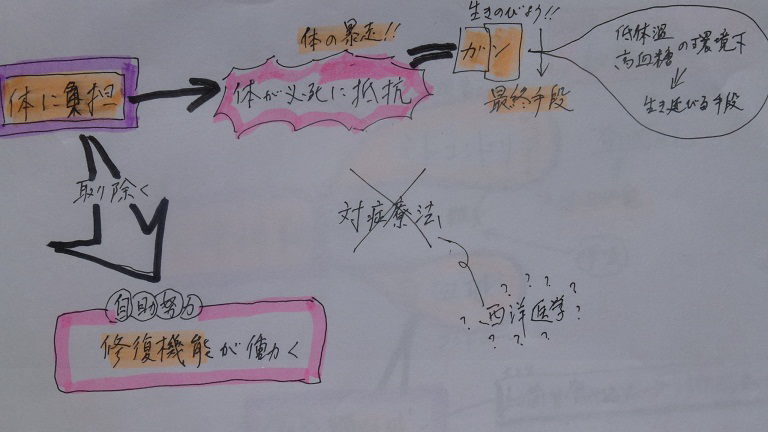 生きのびよう!!
体の暴走!!
ガン
低体温
高血糖の環境下
生き延びる手段
体に負担
体が必死に抵抗
最終手段
取り除く
対症療法
自助努力
修復機能が働く
? ? ? ?
? 西洋医学?
? ? ?